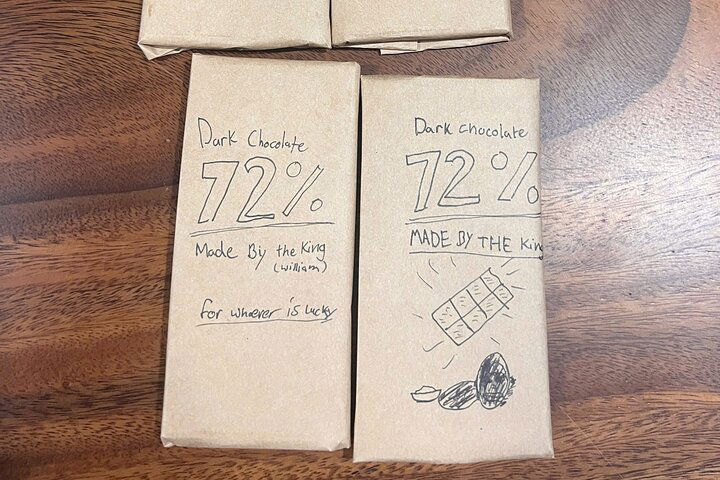 Dark Chocolate
72%
Made By the King
(william)
for whoever is lucky
Dark chocolate
72%
MADE BY THE King